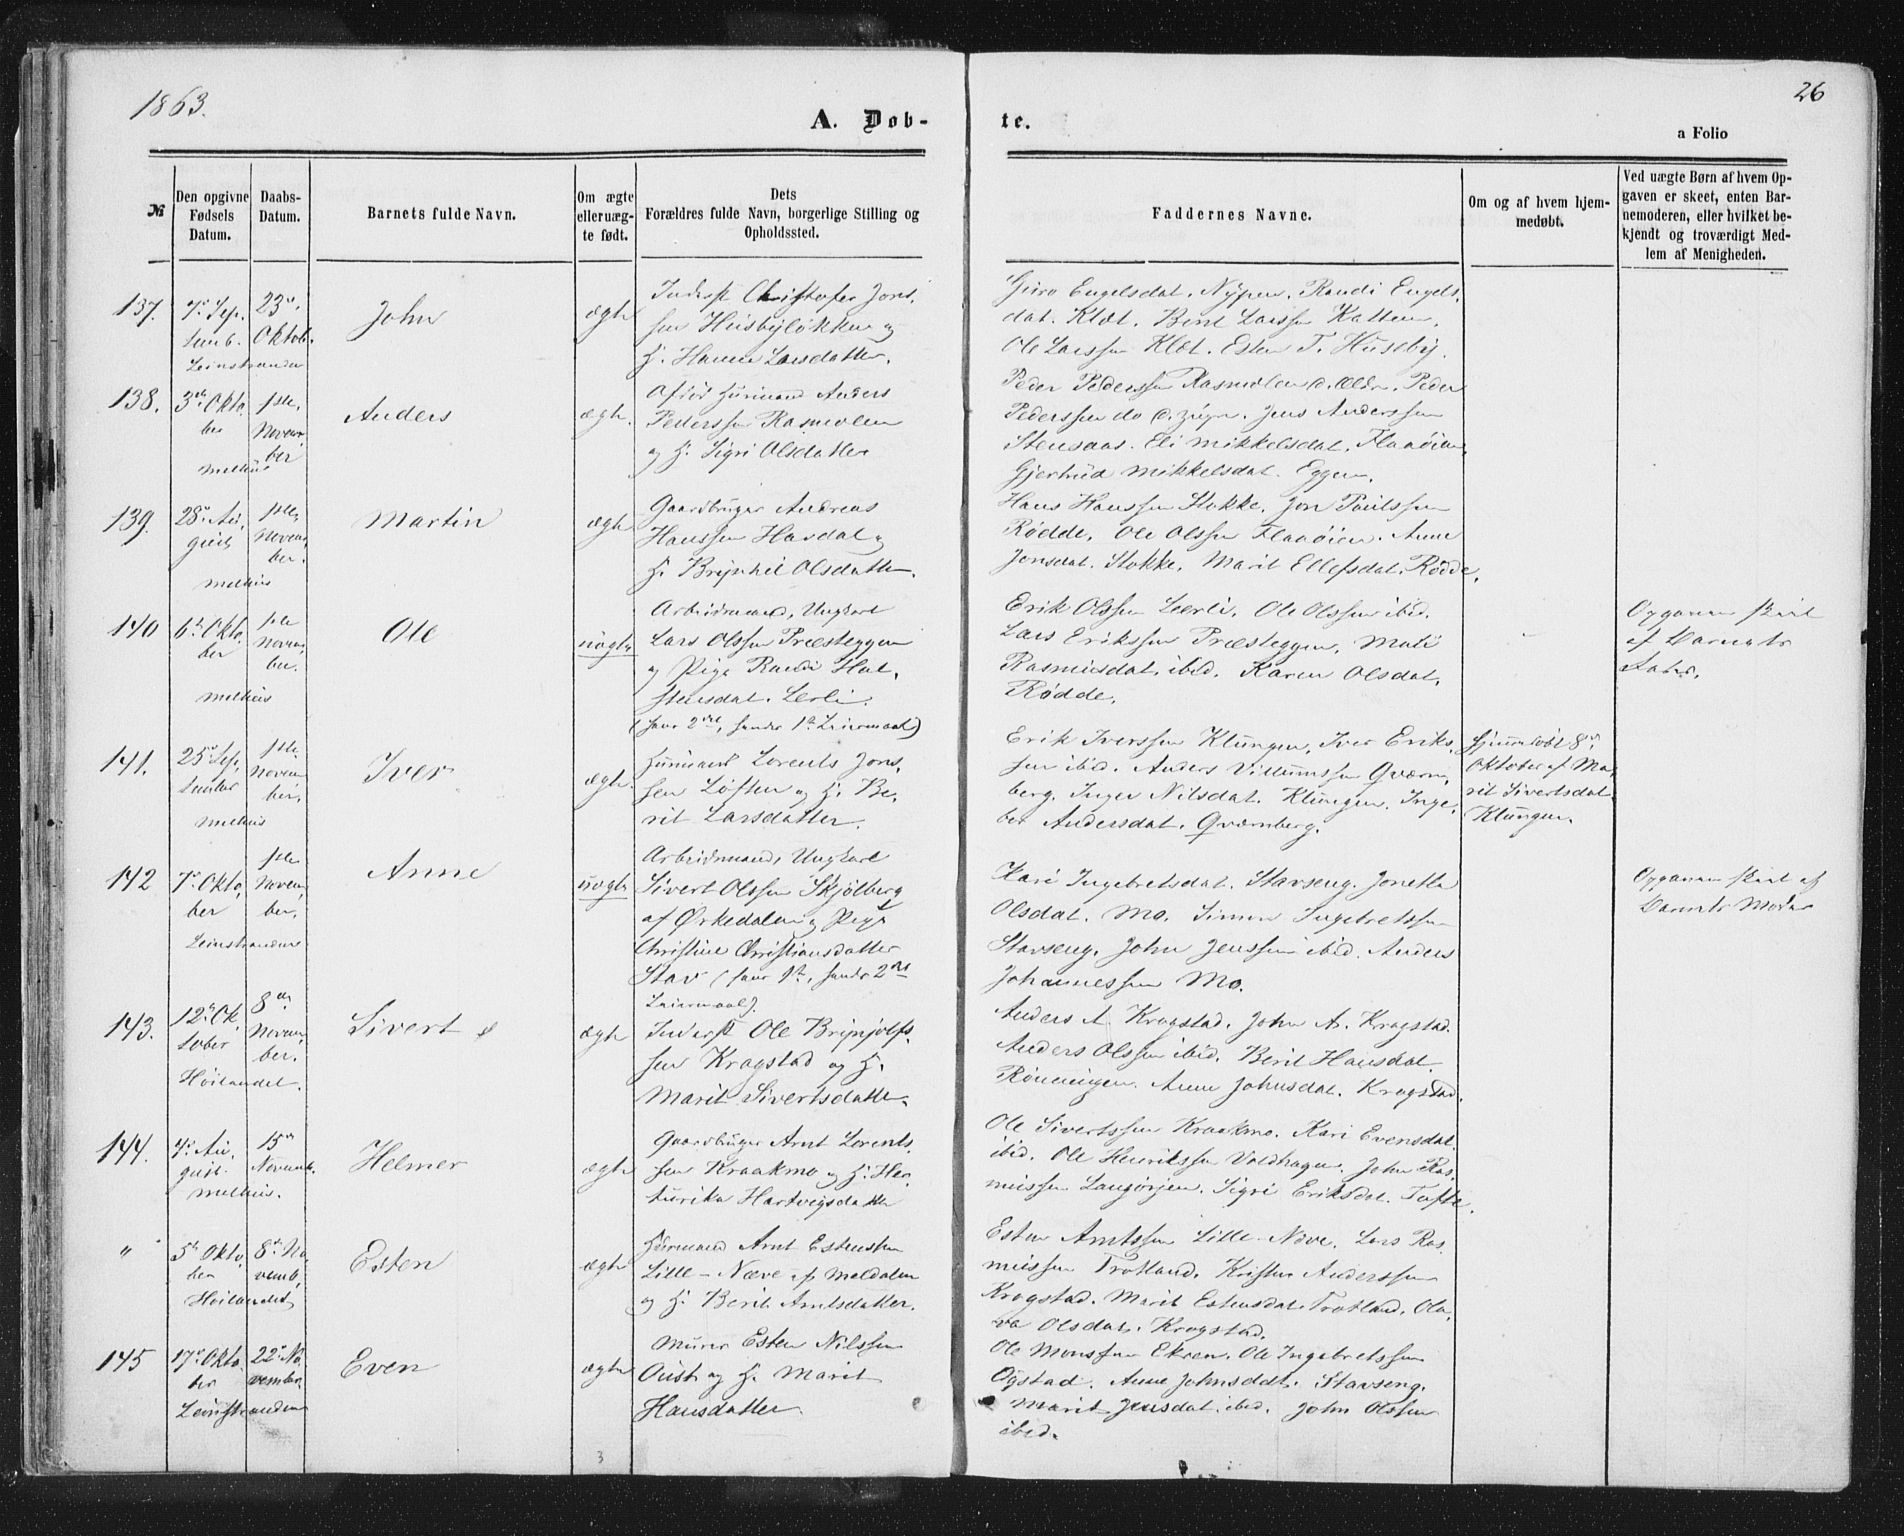 1863.
26
A. Døb-
te.
a Folio
№
Den opgivne
Fødsels
Datum.
Daabs-
Datum.
Barnets fulde Navn.
Om ægte
eller uæg-
te født.
Dets
Forældres fulde Navn, borgerlige Stilling og
Opholdssted.
Faddernes Navne.
Om og af hvem hjem-
medøbt.
Ved uægte Børn af hvem Op-
gaven er skeet, enten Bar-
nemoderen, eller hvilket be-
kjendt og troværdigt Med-
lem af Menigheden.
137.
7de Sep.
temb.
Leinstranden
23de
Oktob.
John
ægte
Inderst Christofer Jons,
sen Huisbyløkken og
H. Hanna Larsdatter.
Guro Engelsdat. Nypen. Randi Engels,
dat. Klæt. Bent Larssen Kattem.
Ole Larssen Klæt. Esten T. Huseby.
138.
3die Okto,
ber
Melhus
1ste
Novem,
ber
Anders
ægte.
Afdød Huusmand Anders
Pederssen Rasmolen
og H. Sigri Olsdatter
Peder Pederssen Rasmolen d. Ældr. Peder
Pederssen do d. yngr. Jens Anderssen
Stensaas. Eli Mikkelsdat. Flaaøien,
Gjertrud Mikkelsdat. Eggen.
139.
28de Au,
gust
Melhus
1ste
Novem,
ber.
Martin
ægte
Gaardbruger Andreas
Hanssen Havdal og
H. Brynhil Olsdatter.
Hans Hanssen Stokke. Jon Poulssen
Rødde. Ole Olssen Flaaøien. Anne
Jonsdat. Stokke. Marit Ellefsdat. Rødde.
140
6te Okto,
ber
Melhus
1ste
Novem,
ber.
Ole
uægte
Arbeidsmand, Ungkarl
Lars Olssen Præsteggen
og Pige Randi Hal,
stensdat. Lerli.
(hans 2det, hendes 1ste Leiermaal)
Erik Olssen Lerli. Ole Olssen ibid.
Lars Erikssen Præsteggen. Mali
Rasmusdat. ibid. Karen Olsdat.
Rødde.
Opgaven skeet
af Barnets
Fader.
141.
25de Sep,
tember
Melhus
1ste
Novem
ber.
Iver
ægte.
Huusmand Lorents Jons,
sen Løften og H. Be,
rit Larsdatter.
Erik Iverssen Klungen. Iver Eriks,
sen ibid. Anders Villumssen Qværn,
berg. Inger Nilsdat. Klungen. Inge,
bor Andersdat. Qværnberg.
Hjemmedøbt 8de
Oktober af Ma,
rit Sivertsdat.
Klungen.
142
7de Okto,
ber
Leinstranden
1ste
Novem,
ber.
Anne
uægte
Arbeidsmand, Ungkarl
Sivert Olssen Skjølberg
af Ørkedalen og Pige
Christine Christiansdatter
Stav (hans 1ste, hendes 2det
Leiermaal).
Kari Ingebretsdat. Stavseng. Jonetta
Olsdat. Mo. Simon Ingebretssen
Stavseng. John Jenssen ibid. Anders
Johannessen Mo.
Opgaven skeet af
Barnets Moder
143.
12te Ok,
tober
Høilandet.
8de
Novem,
ber.
Sivert
ægte
Inderst Ole Brynjolfs,
sen Krogstad og H.
Marit Sivertsdatter.
Anders A. Krogstad. John A. Krogstad.
Anders Olssen ibid. Berit Hansdat.
Rønningen. Anne Johnsdat. Krogstad.
144.
4de Au,
gust.
Melhus.
15de
Novemb.
Helmer
ægte
Gaardbruger Arnt Lorents,
sen Kraakmo og H. Hen,
turika Hartvigsdatter
Ole Sivertssen Kraakmo. Kari Evensdat.
ibid. Ole Henrikssen Voldhagen. John Ras,
mussen Langørjen. Sigri Eriksdat. Tofte.
"
5te Okto,
ber
Høilandet
8de No,
vemb.
Esten
ægte
Huusmand Arnt Estensen
Lille-Næve af Meldalen
og H. Berit Arntsdatter.
Esten Arntssen Lille-Næve. Lars Ras,
mussen Trotland. Kristen Anderssen
Krogstad. Marit Estensdat. Trotland. Ola,
va Olsdat. Krogstad.
145
17de Okto,
ber
Leinstranden
22de No,
vember.
Even
ægte
Murer Esten Nilssen
Oust og H. Marit
Hansdatter.
Ole Monssen Ekren. Ole Ingebretssen
Øgstad. Anne Johnsdat. Stavseng.
Marit Jensdat. ibid. John Olssen
ibid.
3